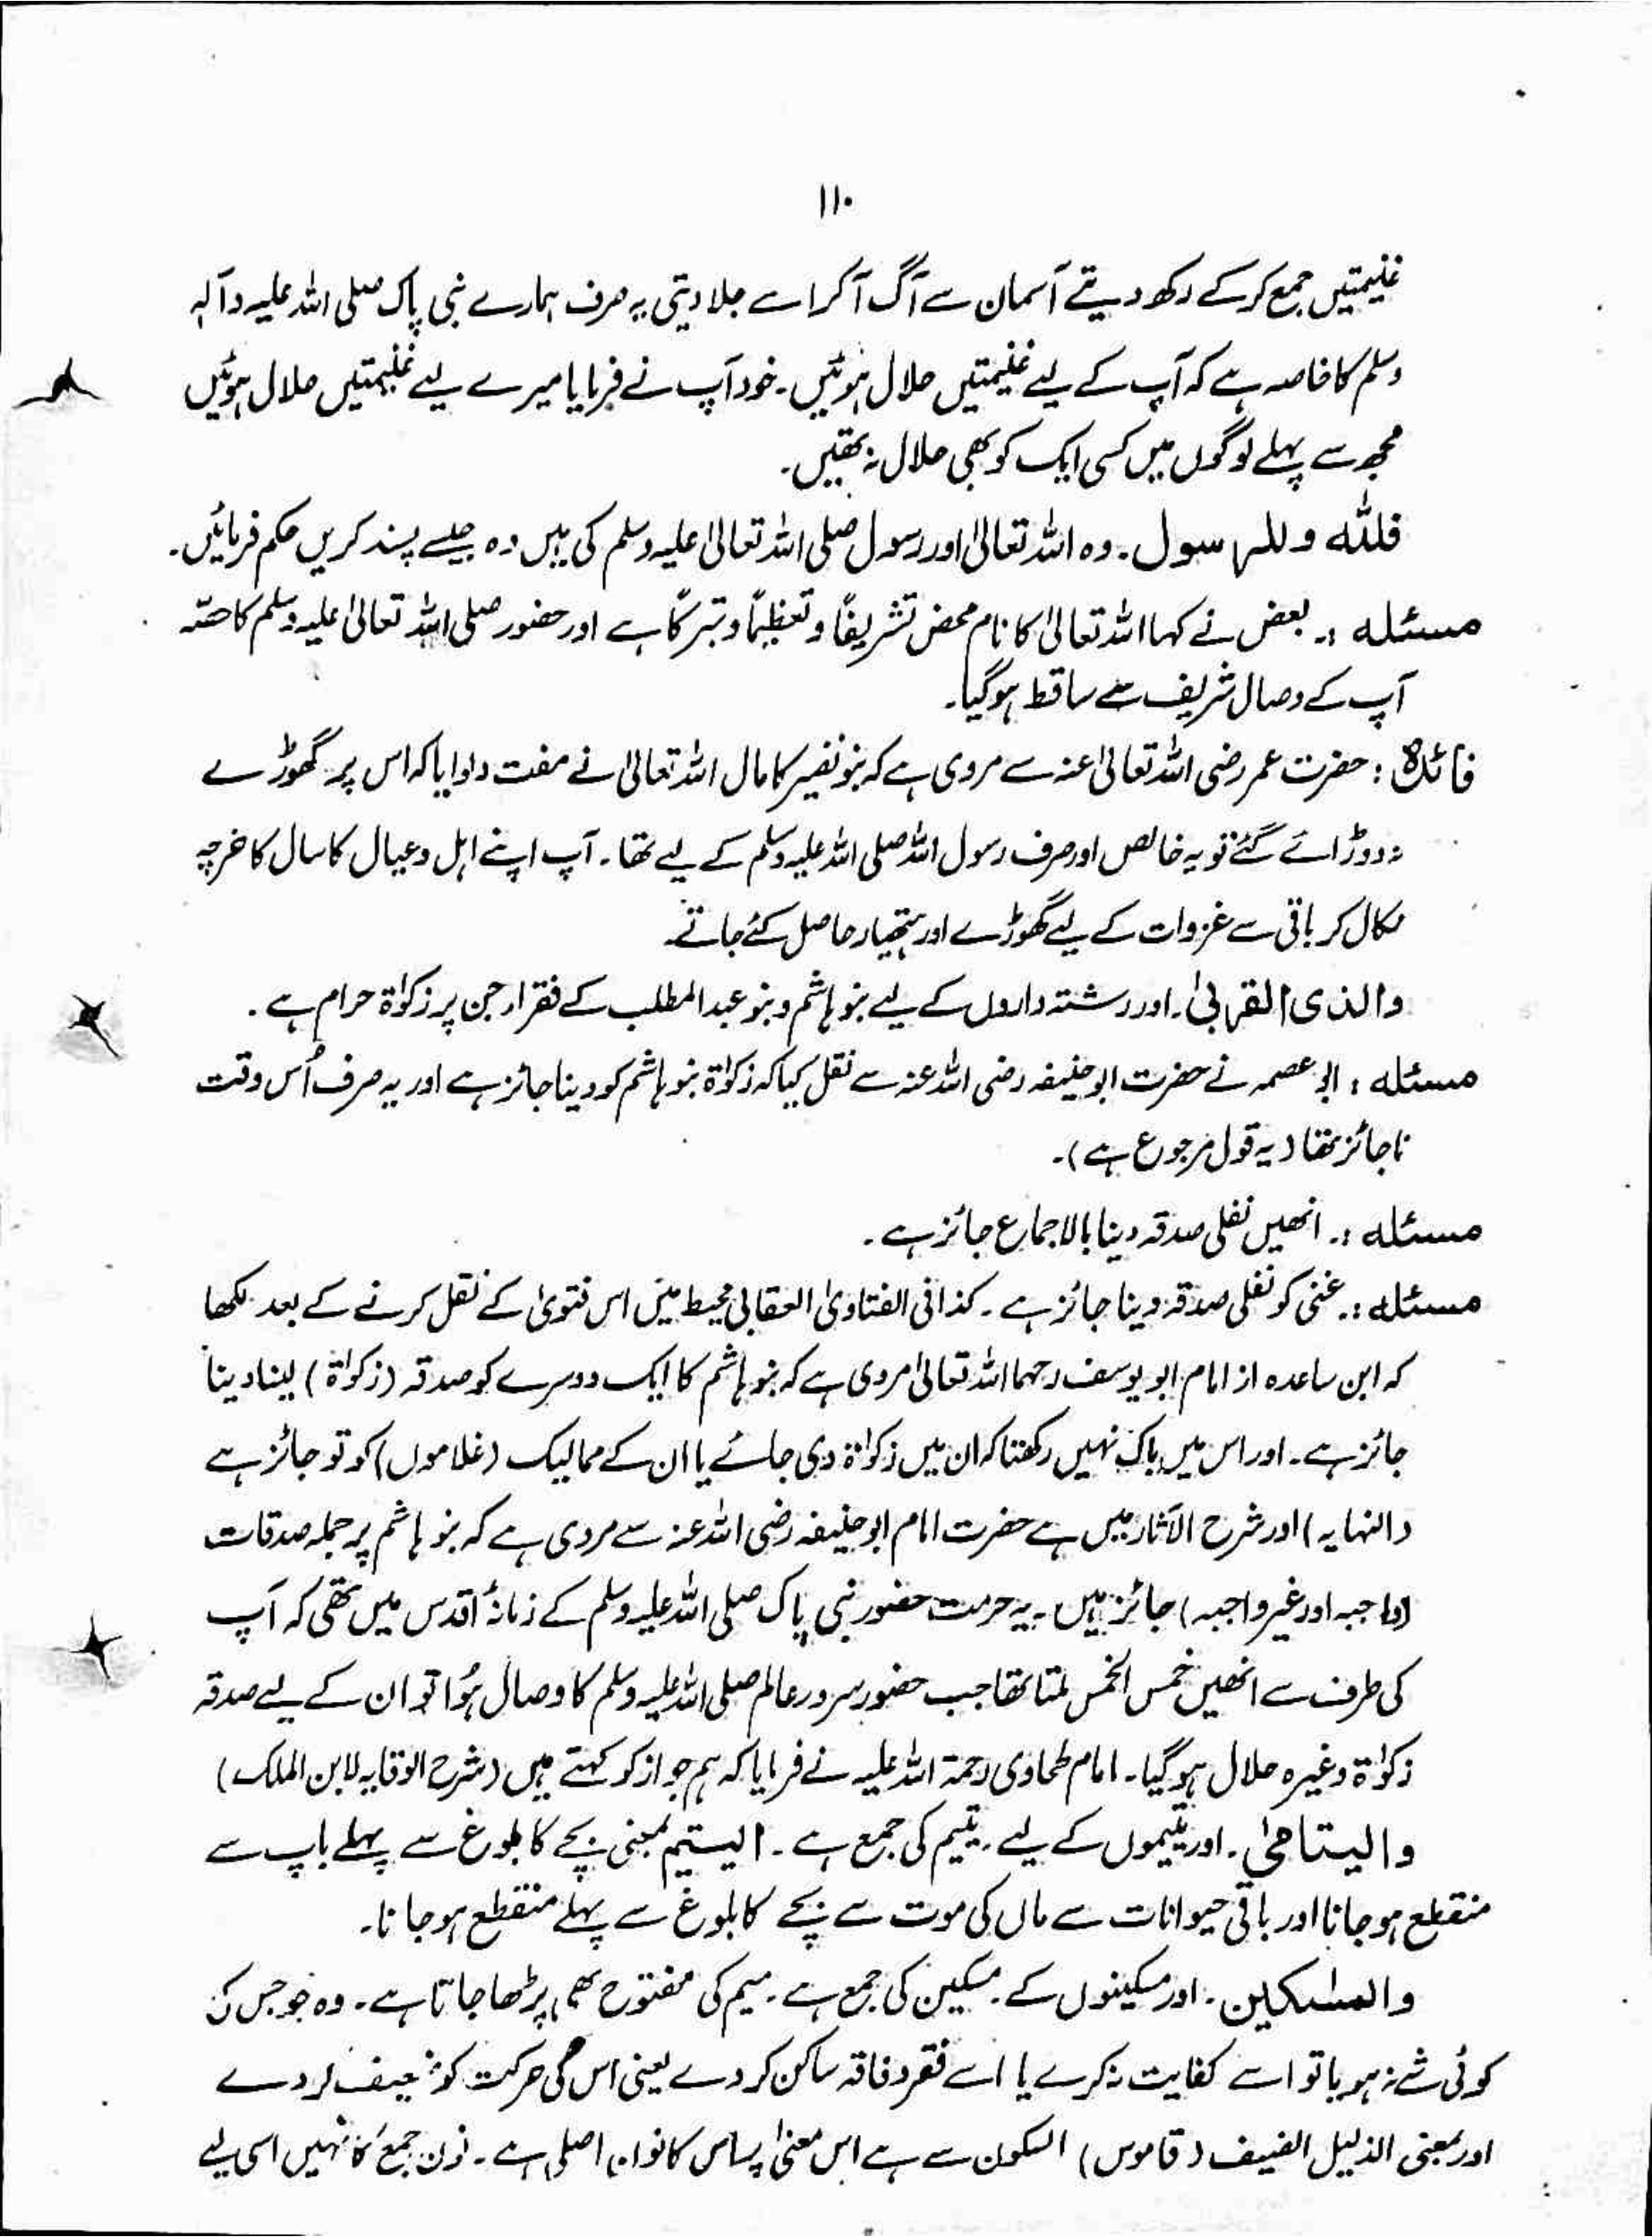 ۱۱۰
غنیمتیں جمع کرکے رکھ دیتے آسمان سے آگ آکر اسے جلا دیتی یہ صرف ہمارے نبی پاک صلی اللہ علیہ وآلہٖ
وسلم کا خاصہ ہے کہ آپ کے لیے غنیمتیں حلال ہوئیں۔ خود آپ نے فرمایا میرے لیے غنیمتیں حلال ہوئیں
مجھ سے پہلے لوگوں میں کسی ایک کو بھی حلال نہ تھیں۔
فللّٰه وللرسول۔ وہ اللہ تعالیٰ اور رسول صلی اللہ تعالیٰ علیہ وسلم کی ہیں وہ جیسے پسند کریں حکم فرمائیں۔
مسئله :۔ بعض نے کہا اللہ تعالیٰ کا نام محض تشریفًا وتعظیمًا وتبرکًا ہے اور حضور صلی اللہ تعالیٰ علیہ وسلم کا حصّہ
آپ کے وصال شریف سے ساقط ہوگیا۔
فائدہ : حضرت عمر رضی اللہ تعالیٰ عنہ سے مروی ہے کہ بنو نضیر کا مال اللہ تعالیٰ نے مفت دلوایا کہ اس پر گھوڑے
نہ دوڑائے گئے تو یہ خالص اور صرف رسول اللہ صلی اللہ علیہ وسلم کے لیے تھا۔ آپ اپنے اہل وعیال کا سال کا خرچہ
نکال کر باقی سے غزوات کے لیے گھوڑے اور ہتھیار حاصل کئے جاتے۔
والذی القربیٰ۔ اور رشتہ داروں کے لیے بنو ہاشم و بنو عبدالمطلب کے فقراء جن پر زکوٰۃ حرام ہے۔
مسئله : ابو عصمہ نے حضرت ابوحنیفہ رضی اللہ عنہ سے نقل کیا کہ زکوٰۃ بنو ہاشم کو دینا جائز ہے اور یہ صرف اُس وقت
ناجائز تھا (یہ قول مرجوع ہے)۔
مسئله :۔ انھیں نفلی صدقہ دینا بالاجماع جائز ہے۔
مسئله :۔ غنی کو نفلی صدقہ دینا جائز ہے۔ کذافی الفتاویٰ العقابی محیط میں اس فتویٰ کے نقل کرنے کے بعد لکھا
کہ ابن ساعدہ از امام ابو یوسف رحمہما اللہ تعالیٰ مروی ہے کہ بنو ہاشم کا ایک دوسرے کو صدقہ (زکوٰۃ) لینا دینا
جائز ہے۔ اور اس میں باک نہیں رکھتا کہ ان میں زکوٰۃ دی جائے یا ان کے ممالیک (غلاموں) کو تو جائز ہے
(النہایہ) اور شرح الآثار میں ہے حضرت امام ابوحنیفہ رضی اللہ عنہ سے مروی ہے کہ بنو ہاشم پر جملہ صدقات
(واجبہ اور غیر واجبہ) جائز ہیں۔ یہ حرمت حضور نبی پاک صلی اللہ علیہ وسلم کے زمانۂ اقدس میں تھی کہ آپ
کی طرف سے انھیں خمس الخمس ملتا تھا جب حضور سرور عالم صلی اللہ علیہ وسلم کا وصال ہُوا تو ان کے لیے صدقہ
زکوٰۃ وغیرہ حلال ہوگیا۔ امام طحاوی رحمۃ اللہ علیہ نے فرمایا کہ ہم جواز کو کہتے ہیں (شرح الوقایہ لابن الملک)
والیتامیٰ۔ اور یتیموں کے لیے۔ یتیم کی جمع ہے۔ الیتیم بمعنی بچے کا بلوغ سے پہلے باپ سے
منقطع ہو جانا اور باقی حیوانات سے ماں کی موت سے بچے کا بلوغ سے پہلے منقطع ہو جانا۔
والمسٰکین۔ اور مسکینوں کے۔ مسکین کی جمع ہے۔ میم کی مفتوح بھی پڑھا جاتا ہے۔ وہ جو جس کی
کوئی شے نہ ہو یا تو اسے کفایت نہ کرے یا اسے فقر وفاقہ ساکن کردے یعنی اس کی حرکت کو ضعیف کردے
اور بمعنی الذلیل الضیف (قاموس) السکون سے ہے اس معنیٰ پر اس کا نون اصلی ہے۔ نون جمع کا نہیں اسی لیے